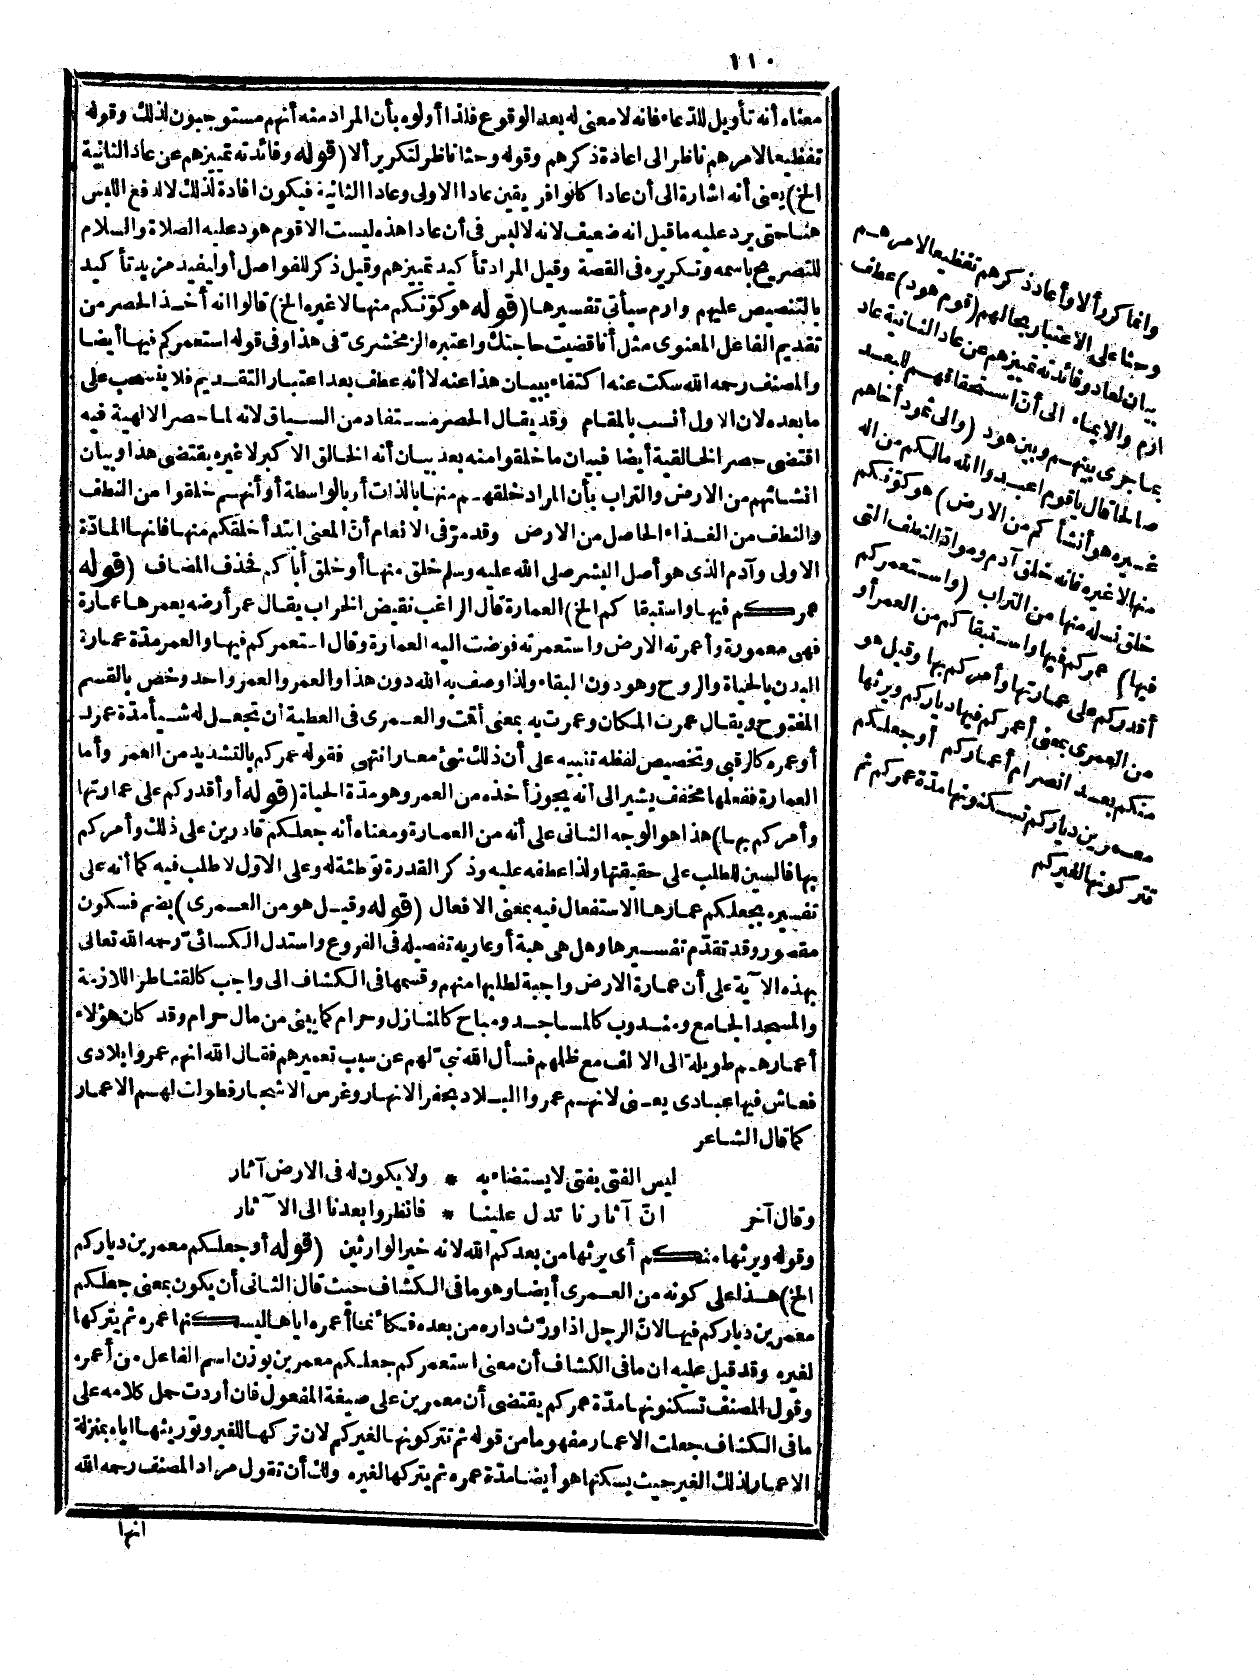 ١١٠
معناه أنه تأويل للدعاء فانه لا معنى له بعد الوقوع فلذا أولوه بأن المراد منه أنهم مستوجبون لذلك وقوله
تفظيعا لامرهم ناظر الى اعادة ذكرهم وقوله وحثا ناظر لتكرير ألا (قوله وفائدته تمييزهم عن عاد الثانية
الخ) يعني أنه اشارة الى أن عادا كانوا فريقين عادا الاولى وعادا الثانية فيكون افادة لذلك لا لدفع اللبس
هنا حتى يرد عليه ما قيل انه ضعيف لانه لا لبس في أن عادا هذه ليست الا قوم هود عليه الصلاة والسلام
للتصريح باسمه وتكريره في القصة وقيل المراد تأكيد تمييزهم وقيل ذكر للفواصل أو ليفيد مزيد تأكيد
بالتنصيص عليهم وارم سيأتي تفسيرها (قوله هو كونكم منها لا غيره الخ) قالوا انه أخذ الحصر من
تقديم الفاعل المعنوي مثل أنا قضيت حاجتك واعتبره الزمخشري في هذا وفي قوله استعمركم فيها أيضا
والمصنف رحمه الله سكت عنه اكتفاء ببيان هذا عنه لا أنه عطف بعد اعتبار التقديم فلا يذهب على
ما بعده لان الاول أنسب بالمقام وقد يقال الحصر مستفاد من السياق لانه لما حصر الالهية فيه
اقتضى حصر الخالقية أيضا فبيان ما خلقوا منه بعد بيان أنه الخالق الاكبر لا غيره يقتضي هذا وبيان
انشائهم من الارض والتراب بأن المراد خلقهم منها بالذات أو بالواسطة أو أنهم خلقوا من النطف
والنطف من الغذاء الحاصل من الارض وقد مرّ في الانعام أنّ المعنى ابتدأ خلقكم منها فانها المادّة
الاولى وآدم الذي هو أصل البشر صلى الله عليه وسلم خلق منها أو خلق أباكم فحذف المضاف (قوله
عمركم فيها واستبقاكم الخ) العمارة قال الراغب نقيض الخراب يقال عمر أرضه يعمرها عمارة
فهي معمورة وأعمرته الارض واستعمرته فوضت اليه العمارة وقال استعمركم فيها والعمر مدّة عمارة
البدن بالحياة والروح وهو دون البقاء ولذا وصف به الله دون هذا والعمر والعمر واحد وخص بالقسم
المفتوح ويقال عمرت المكان وعمرت به بمعنى أقمت والعمرى في العطية أن تجعل له شيأ مدّة عمرك
أو عمره كالرقبى وتخصيص لفظه تنبيه على أن ذلك شئ معار انتهى فقوله عمركم بالتشديد من العمر وأما
العمارة ففعلها مخفف يشير الى أنه يجوز أخذه من العمر وهو مدّة الحياة (قوله أو أقدركم على عمارتها
وأمركم بها) هذا هو الوجه الثاني على أنه من العمارة ومعناه أنه جعلكم قادرين على ذلك وأمركم
بها فالسين للطلب على حقيقتها ولذا عطفه عليه وذكر القدرة توطئة له وعلى الاوّل لا طلب فيه كما أنه على
تفسيره بجعلكم عمارها الاستفعال فيه بمعنى الافعال (قوله وقيل هو من العمرى) بضم فسكون
مقصور وقد تقدّم تفسيرها وهل هي هبة أو عارية تفصيله في الفروع واستدل الكسائيّ رحمه الله تعالى
بهذه الآية على أن عمارة الارض واجبة لطلبها منهم وقسمها في الكشاف الى واجب كالقناطر اللازمة
والمسجد الجامع ومندوب كالمساجد ومباح كالمنازل وحرام كما يبنى من مال حرام وقد كان هؤلاء
أعمارهم طويلة الى الالف مع ظلمهم فسأل الله نبيّ لهم عن سبب تعميرهم فقال الله انهم عمروا بلادي
فعاش فيها عبادي يعني لانهم عمروا البلاد بحفر الانهار وغرس الاشجار فطولت لهم الاعمار
كما قال الشاعر
ليس الفتى بفتى لا يستضاء به * ولا يكون له في الارض آثار
وقال آخر انّ آثارنا تدل علينا * فانظروا بعدنا الى الآثار
وقوله ويرثها منكم أي يرثها من بعدكم الله لانه خير الوارثين (قوله أو جعلكم معمرين دياركم
الخ) هذا على كونه من العمرى أيضا وهو ما في الكشاف حيث قال الثاني أن يكون بمعنى جعلكم
معمرين دياركم فيها لانّ الرجل اذا ورّث داره من بعده فكأنما أعمره اياها ليسكنها عمره ثم يتركها
لغيره وقد قيل عليه ان ما في الكشاف أن معنى استعمركم جعلكم معمرين بوزن اسم الفاعل من أعمره
وقول المصنف تسكنونها مدّة عمركم يقتضي أن معمرين على صيغة المفعول فان أردت حمل كلامه على
ما في الكشاف جعلت الاعمار مفهوما من قوله ثم تتركونها لغيركم لان تركها للغير وتوريثها اياه بمنزلة
الاعمار لذلك الغير حيث يسكنها هو أيضا مدّة عمره ثم يتركها لغيره ولك أن تقول مراد المصنف رحمه الله
انها
وانما كرر ألا وأعاد ذكرهم تفظيعا لامرهم
وحثا على الاعتبار بحالهم (قوم هود) عطف
بيان لعاد وفائدته تمييزهم عن عاد الثانية عاد
ارم والايماء الى أنّ استحقاقهم للبعد
بما جرى بينهم وبين هود (والى ثمود أخاهم
صالحا قال يا قوم اعبدوا الله مالكم من اله
غيره هو أنشأكم من الارض) هو كونكم
منها لا غيره فانه خلق آدم ومواد النطف التي
خلق نسله منها من التراب (واستعمركم
فيها) عمركم فيها واستبقاكم من العمر أو
أقدركم على عمارتها وأمركم بها وقيل هو
من العمرى بمعنى أعمركم فيها دياركم ويرثها
منكم بعد انصرام أعماركم أو جعلكم
معمرين دياركم تسكنونها مدّة عمركم ثم
تتركونها لغيركم